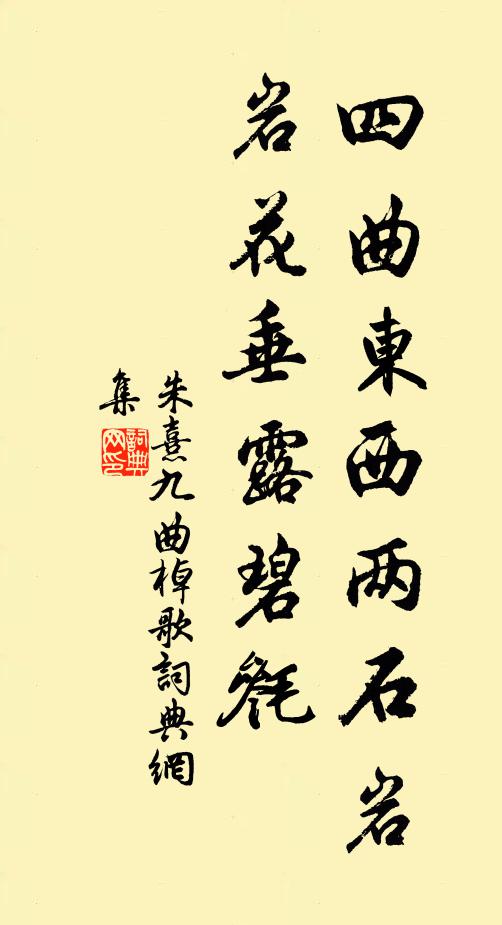 四曲東西两石岩
岩花垂露碧毿
朱熹九曲棹歌詞典網
集
詞典
网印